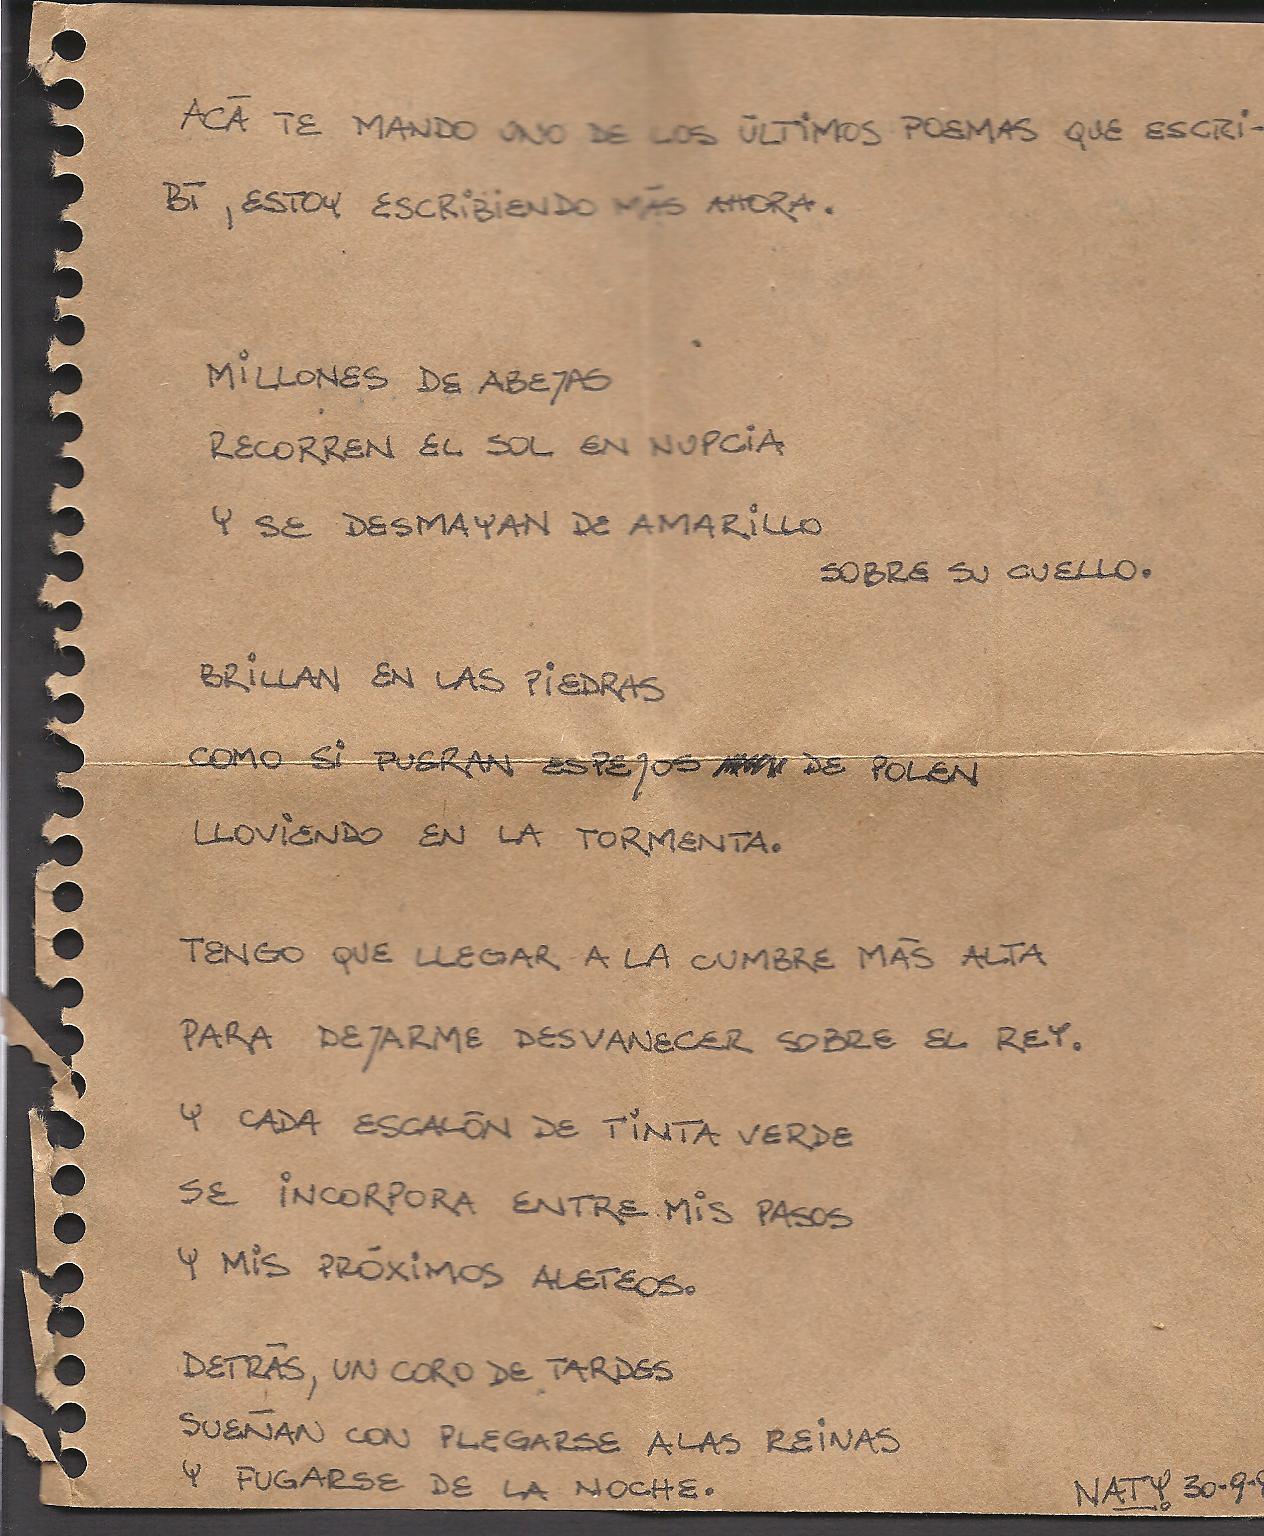 ACÁ TE MANDO UNO DE LOS ÚLTIMOS POEMAS QUE ESCRI-
BÍ, ESTOY ESCRIBIENDO MÁS AHORA.
MILLONES DE ABEJAS
RECORREN EL SOL EN NUPCIA
Y SE DESMAYAN DE AMARILLO
SOBRE SU CUELLO.
BRILLAN EN LAS PIEDRAS
COMO SI FUERAN ESPEJOS DE POLEN
LLOVIENDO EN LA TORMENTA.
TENGO QUE LLEGAR A LA CUMBRE MÁS ALTA
PARA DEJARME DESVANECER SOBRE EL REY.
Y CADA ESCALÓN DE TINTA VERDE
SE INCORPORA ENTRE MIS PASOS
Y MIS PRÓXIMOS ALETEOS.
DETRÁS, UN CORO DE TARDES
SUEÑAN CON PLEGARSE A LAS REINAS
Y FUGARSE DE LA NOCHE.
NATY 30-9-